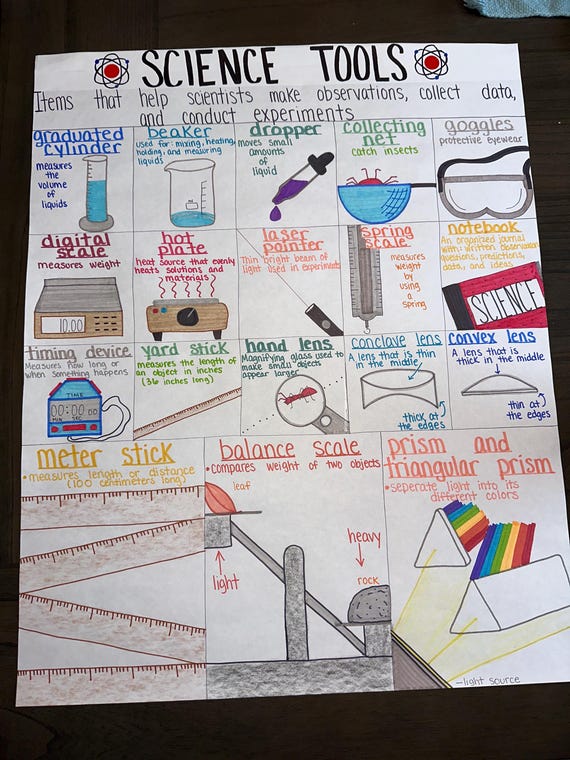 SCIENCE TOOLS
Items that help scientists make observations, collect data,
and conduct experiments
graduated
cylinder
measures
the
volume
of
liquids
beaker
used for: mixing, heating,
holding, and measuring
liquids
dropper
moves small
amounts
of
liquid
collecting
net
catch insects
goggles
protective eyewear
digital
scale
measures weight
10.00
hot
plate
heat source that evenly
heats solutions and
materials
laser
pointer
Thin bright beam of
light used in experiments
spring
scale
measures
weight
by
using
a
spring
notebook
An organized journal
with: written observations,
questions, predictions,
data, and ideas
SCIENCE
timing device
Measures how long or
when something happens
TIME
00:00 00
MIN SEC
yard stick
measures the length of
an object in inches
(36 inches long)
hand lens
Magnifying glass used to
make small objects
appear larger
conclave lens
A lens that is thin
in the middle
thick at
the edges
convex lens
A lens that is
thick in the middle
thin at
the edges
meter stick
• measures length or distance
(100 centimeters long)
balance scale
• compares weight of two objects
leaf
light
heavy
rock
prism and
triangular prism
• seperate light into its
different colors
—light source